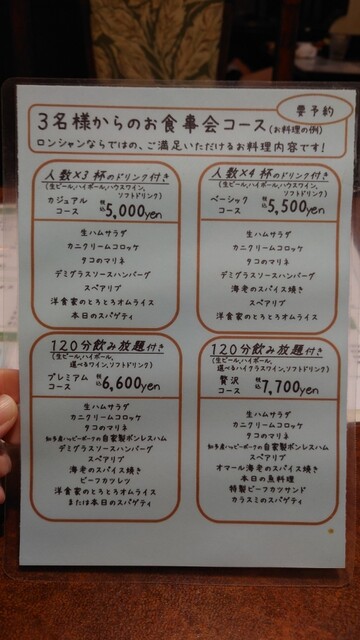 要予約
3名様からのお食事会コース(お料理の例)
ロンシャンならではの、ご満足いただけるお料理内容です!
人数×3杯のドリンク付き
(生ビール,ハイボール,ハウスワイン,
ソフトドリンク)
カジュアルコース 税込5,000yen
生ハムサラダ
カニクリームコロッケ
タコのマリネ
デミグラスソースハンバーグ
スペアリブ
洋食家のとろとろオムライス
本日のスパゲティ
人数×4杯のドリンク付き
(生ビール,ハイボール,ハウスワイン,
ソフトドリンク)
ベーシックコース 税込5,500yen
生ハムサラダ
カニクリームコロッケ
タコのマリネ
デミグラスソースハンバーグ
海老のスパイス焼き
スペアリブ
洋食家のとろとろオムライス
120分飲み放題付き
(生ビール,ハイボール,
選べるワイン,ソフトドリンク)
プレミアムコース 税込6,600yen
生ハムサラダ
カニクリームコロッケ
タコのマリネ
知多産ハッピーポークの自家製ボンレスハム
デミグラスソースハンバーグ
スペアリブ
海老のスパイス焼き
ビーフカツレツ
洋食家のとろとろオムライス
または本日のスパゲティ
120分飲み放題付き
(生ビール,ハイボール,
選べるハイクラスワイン,ソフトドリンク)
贅沢コース 税込7,700yen
生ハムサラダ
カニクリームコロッケ
タコのマリネ
知多産ハッピーポークの自家製ボンレスハム
スペアリブ
オマール海老のスパイス焼き
本日の魚料理
特製ビーフカツサンド
カラスミのスパゲティ